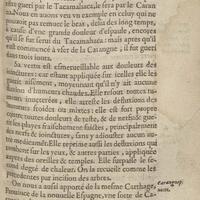 estre gueri par le Tacamahaca, le sera par Caran
na. Nous en auons veu vn exemple en celuy qui ne
pouuoit pas remuer le bras, delia des long temps,
à cause d'vne grande douleur d'espaule, encores
qu'il se fut serui du Tacamahaca: mais apres qu'il
eust commencé à vser de la Caragne, il fut gueri
en trois iours.
Sa vertu est esmerueillable aux douleurs des
iointures: car estant appliquée sur icelles elle les
appaise, pourueu
fluxion d'humeurs chauds. Elle resout toutes tu-
meurs inueterées, elle arreste les defluxions des
humeurs froides ou mixtes: elle est propre
contre toutes douleurs de teste, & de nerfs: & gue-
rit les playes fraischement faictes, principalement
des nerfs & iointures, sans y adiouster aucun au-
tre medicament. Elle reprime aussi les defluxions qui
tombent sur les yeux, & autres parties, appliquée
apres des oreilles & temples. Elle surpasse le se-
cond degré de chaleur. On la recueille comme les
precedentes par incision des arbres.
On nous a aussi apporté de la mesme Carthage,
Prouince de la nouuelle Espagne, vne sorte de Ca-